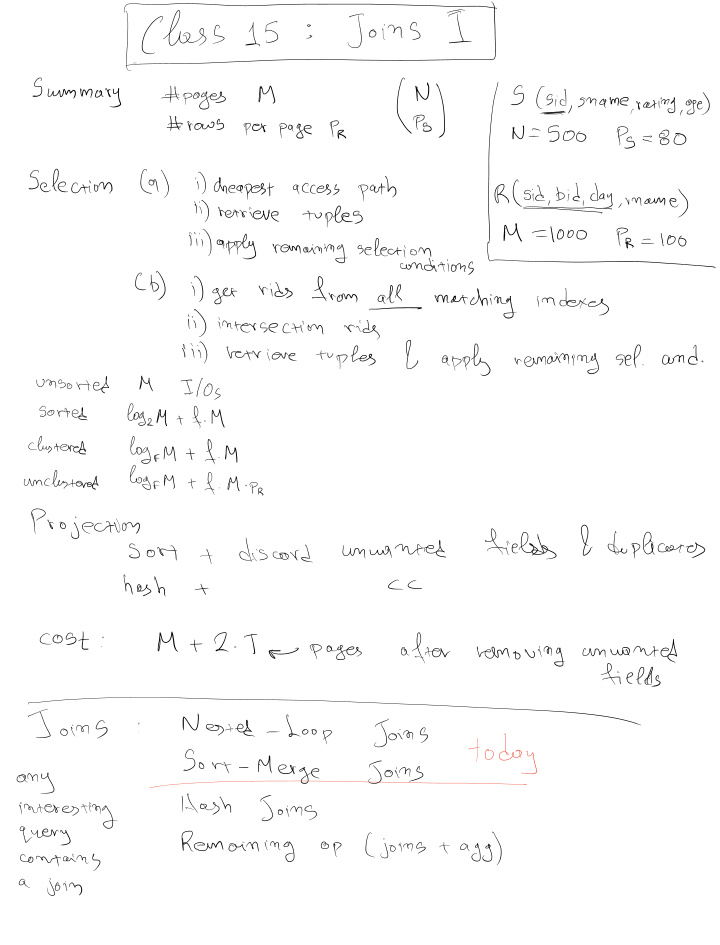 Class 15 : Joins I
Summary #pages M (N
#rows per page PR PS)
S (sid, sname, rating, age)
N=500 PS=80
R(sid, bid, day, rname)
M=1000 PR=100
Selection (a) i) cheapest access path
ii) retrieve tuples
iii) apply remaining selection
conditions
(b) i) get rids from all matching indexes
ii) intersection rids
iii) retrieve tuples & apply remaining sel. cond.
unsorted M I/Os
sorted log2M + f.M
clustered logFM + f.M
unclustered logFM + f.M.PR
Projection
sort + discard unwanted fields & duplicates
hash + cc
cost: M + 2.T ← pages after removing unwanted
fields
Joins : Nested-Loop Joins
Sort-Merge Joins
today
Hash Joins
Remaining op (joins + agg)
any
interesting
query
contains
a join